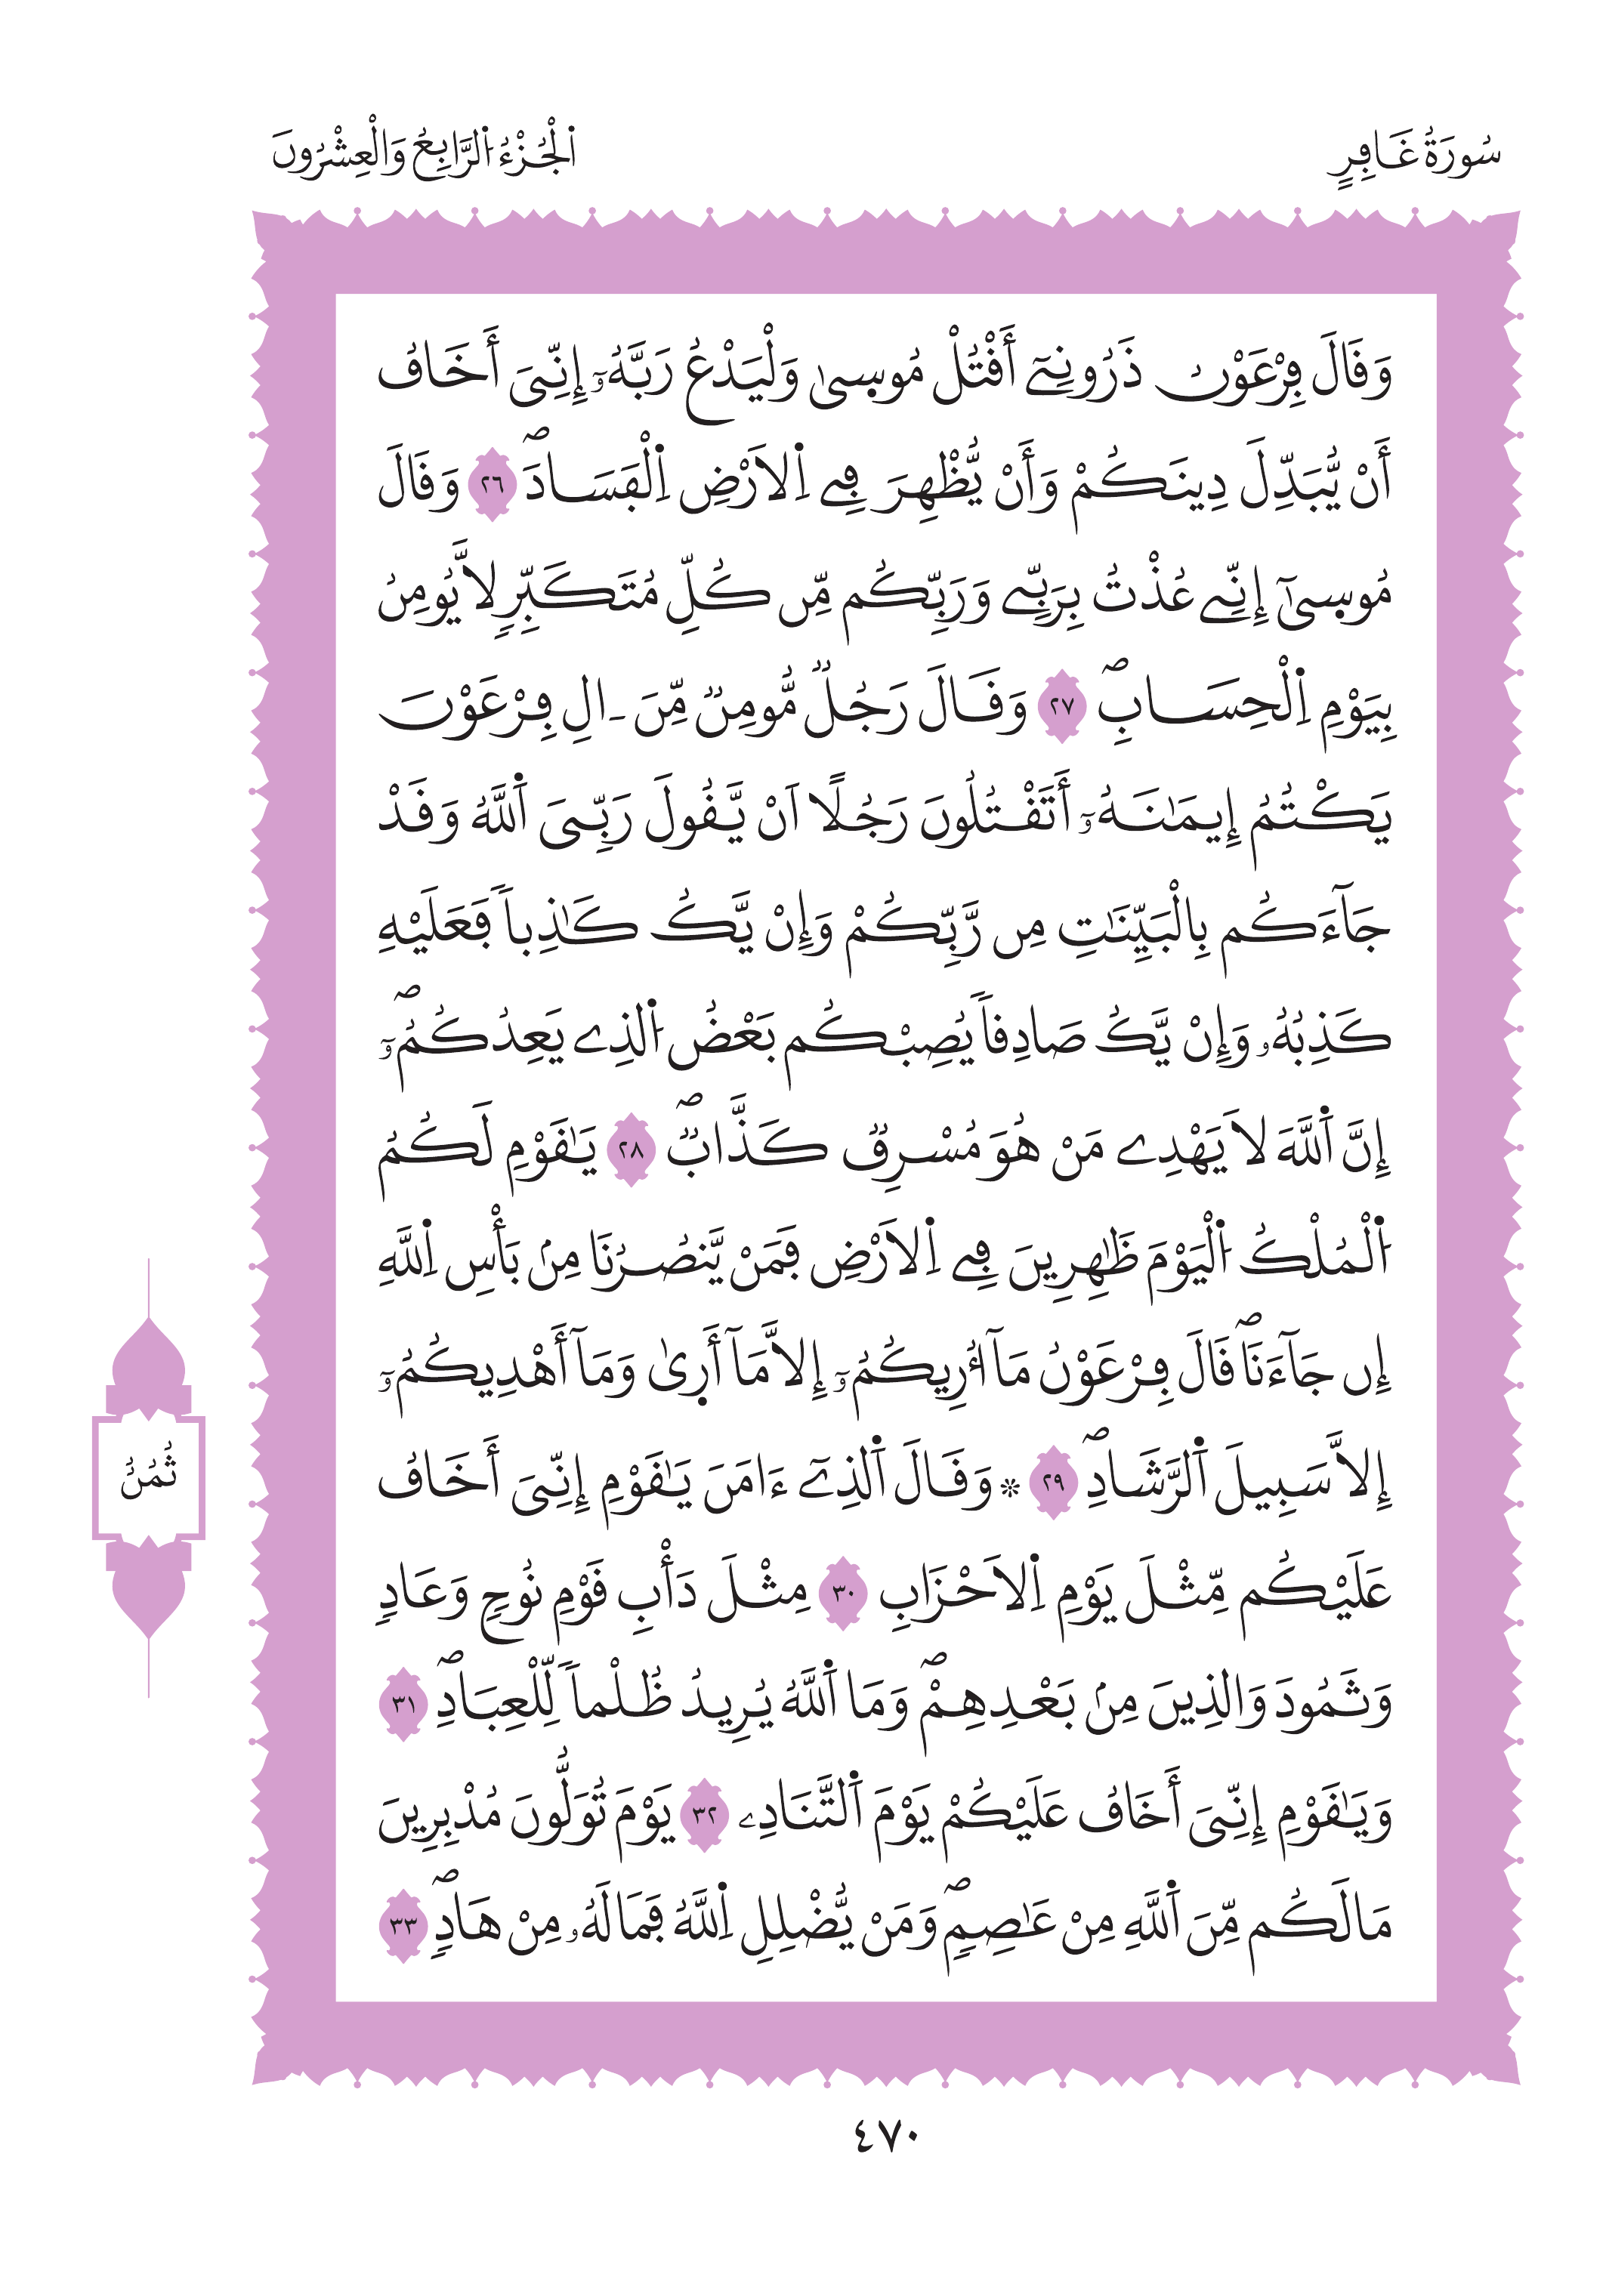 سُورَةُ غَافِرٍ
اَ۬لْجُزْءُ اُ۬لرَّابِعُ وَالْعِشْرُونَ
وَقَالَ فِرْعَوْنُ ذَرُونِےٓ أَقْتُلْ مُوسٜىٰ وَلْيَدْعُ رَبَّهُۥٓ إِنِّيَ أَخَافُ
أَنْ يُّبَدِّلَ دِينَكُمْ وَأَنْ يُّظْهِرَ فِے اِ۬لَارْضِ اِ۬لْفَسَادَۖ ٢٦ وَقَالَ
مُوسٜىٰٓ إِنِّے عُذْتُ بِرَبِّے وَرَبِّكُم مِّن كُلِّ مُتَكَبِّرٖ لَّا يُومِنُ
بِيَوْمِ اِ۬لْحِسَابِۖ ٢٧ وَقَالَ رَجُلٞ مُّومِنٞ مِّنَ ـ اٰلِ فِرْعَوْنَ
يَكْتُمُ إِيمَٰنَهُۥٓ أَتَقْتُلُونَ رَجُلًا اَنْ يَّقُولَ رَبِّيَ اَ۬للَّهُ وَقَدْ
جَآءَكُم بِالْبَيِّنَٰتِ مِن رَّبِّكُمْ وَإِنْ يَّكُ كَٰذِباٗ فَعَلَيْهِ
كَذِبُهُۥ وَإِنْ يَّكُ صَادِقاٗ يُصِبْكُم بَعْضُ اُ۬لذِے يَعِدُكُمُۥٓۖ
إِنَّ اَ۬للَّهَ لَا يَهْدِے مَنْ هُوَ مُسْرِفٞ كَذَّابٞۖ ٢٨ يَٰقَوْمِ لَكُمُ
اُ۬لْمُلْكُ اُ۬لْيَوْمَ ظَٰهِرِينَ فِے اِ۬لَارْضِ فَمَنْ يَّنصُرُنَا مِنۢ بَأْسِ اِ۬للَّهِ
إِن جَآءَنَاۖ قَالَ فِرْعَوْنُ مَآ أُرِيكُمُۥٓ إِلَّا مَآ أَرٜىٰ وَمَآ أَهْدِيكُمُۥٓ
إِلَّا سَبِيلَ اَ۬لرَّشَادِۖ ٢٩ ۞ وَقَالَ اَ۬لذِےٓ ءَامَنَ يَٰقَوْمِ إِنِّيَ أَخَافُ
عَلَيْكُم مِّثْلَ يَوْمِ اِ۬لَاحْزَابِ ٣٠ مِثْلَ دَأْبِ قَوْمِ نُوحٖ وَعَادٖ
وَثَمُودَ وَالذِينَ مِنۢ بَعْدِهِمْۖ وَمَا اَ۬للَّهُ يُرِيدُ ظُلْماٗ لِّلْعِبَادِۖ ٣١
وَيَٰقَوْمِ إِنِّيَ أَخَافُ عَلَيْكُمْ يَوْمَ اَ۬لتَّنَادِۦ ٣٢ يَوْمَ تُوَلُّونَ مُدْبِرِينَ
مَا لَكُم مِّنَ اَ۬للَّهِ مِنْ عَٰصِمٖۖ وَمَنْ يُّضْلِلِ اِ۬للَّهُ فَمَا لَهُۥ مِنْ هَادٖۖ ٣٣
ثُمُنُ
٤٧٠